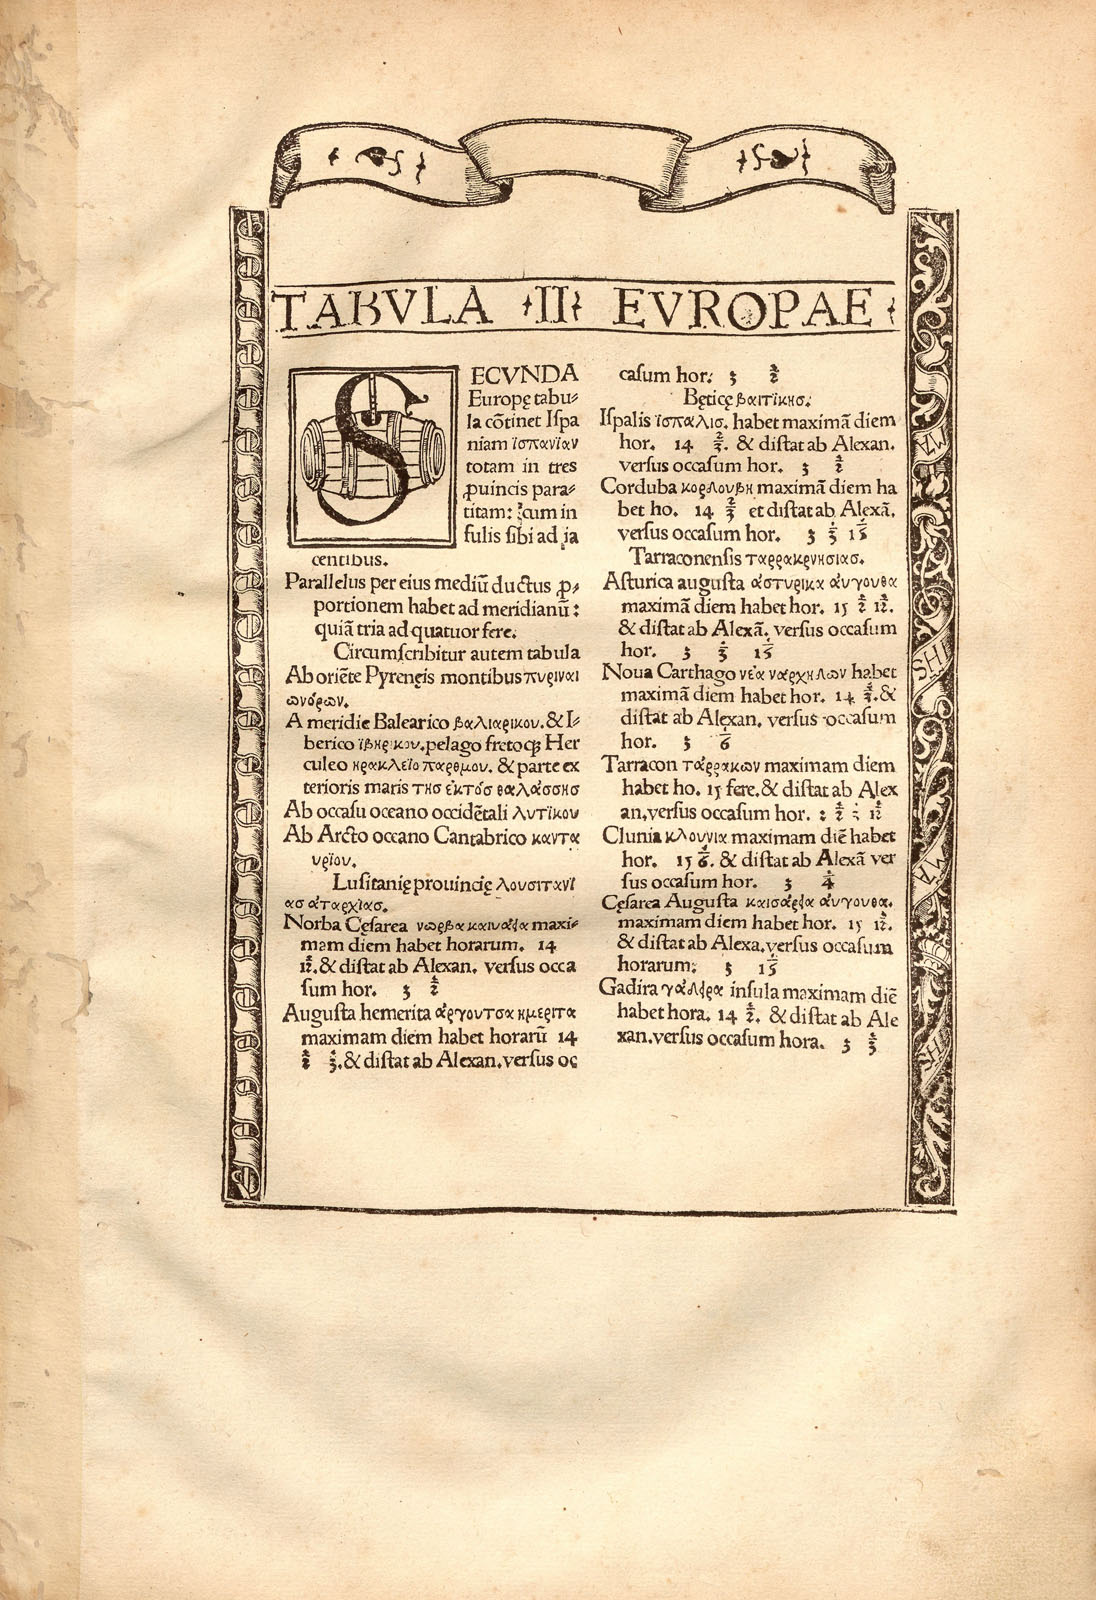 TABVLA II EVROPAE
SECVNDA
Europę tabu⸗
la cõtinet Ispa
niam ϊσπανϊαν
totam in tres
ꝓuincis para⸗
titam: cum in
sulis sibi adia
centibus.
Parallelus per eius mediũ ductus ꝓ⸗
portionem habet ad meridianũ:
quiã tria ad quatuor fere.
Circumscribitur autem tabula
Ab oriẽte Pyrenęis montibus πυριναι
ωνόρων.
A meridie Balearico βαλιαρικου. & I⸗
berico pelago fretoqȝ Her
culeo ηρακλεϊο παρθμου. & parte ex
terioris maris τησ εκτόσ θαλάσσησ
Ab occasu oceano occidẽtali λυτϊκου
Ab Arcto oceano Cantabrico καντα
υρϊου.
Lusitanię prouincię λουσιτανϊ
ασ
Norba Cęsarea νωρβα maxi⸗
mam diem habet horarum. 14
12. & distat ab Alexan. versus occa
sum hor. 3 ½
Augusta hemerita άργουτσα ημεριτα
maximam diem habet horarũ 14
& distat ab Alexan. versus oc
casum hor: 3 ½
Bęticę βαιτικησ.
Ispalis ϊσπαλισ. habet maximã diem
hor. 14 & distat ab Alexan.
versus occasum hor. 3 ½
Corduba maximã diem ha
bet ho. 14 ⅔ et distat ab Alexã.
versus occasum hor. 3 ⅓ 15
Tarraconensis ταρρακρνησιασ.
Asturica augusta άστυρικα άυγουθα
maximã diem habet hor. 15 ½ 12.
& distat ab Alexã. versus occasum
hor. 3 ⅓ 15
Noua Carthago νεα habet
maximã diem habet hor. 14 &
distat ab Alexan. versus occasum
hor. 3 6
Tarracon τάρρακων maximam diem
habet ho. 15 fere. & distat ab Alex
an. versus occasum hor. 2 ½ 12
Clunia κλουνια maximam diẽ habet
hor. 15 6. & distat ab Alexã ver
sus occasum hor. 3 4
Cęsarea Augusta άυγουθα.
maximam diem habet hor. 15 12.
& distat ab Alexa. versus occasum
horarum: 3 15
Gadira insula maximam diẽ
habet hora. 14 ½. & distat ab Ale
xan. versus occasum hora. 3